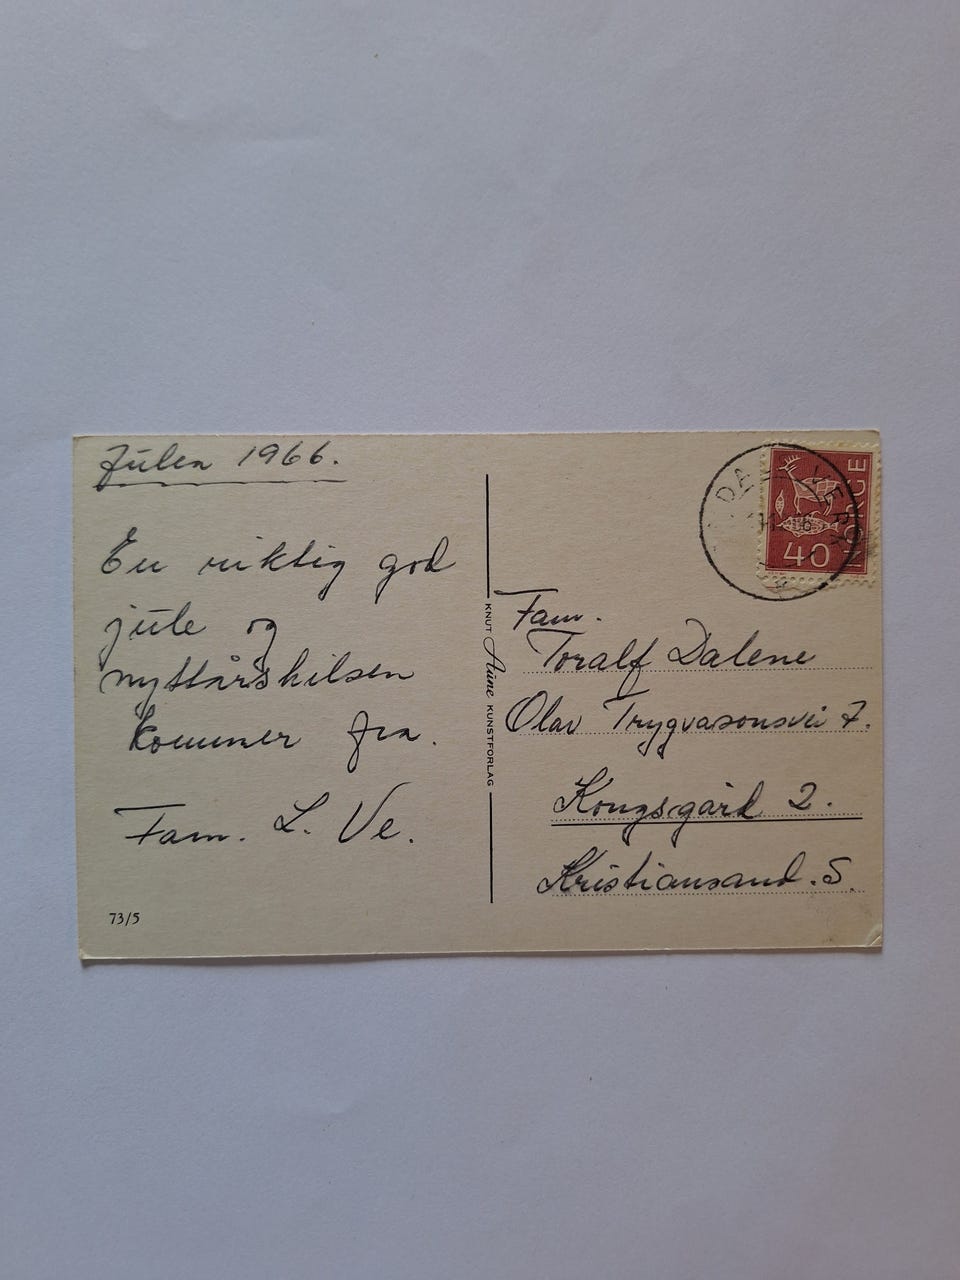 Julen 1966.
En riktig god
jule og
nyttårshilsen
kommer fra.
Fam. L. Ve.
73/5
KNUT Aune KUNSTFORLAG
NORGE
40
Fam.
Toralf Dalene
Olav Trygvasonsvei 7.
Kongsgård 2.
Kristiansand. S.